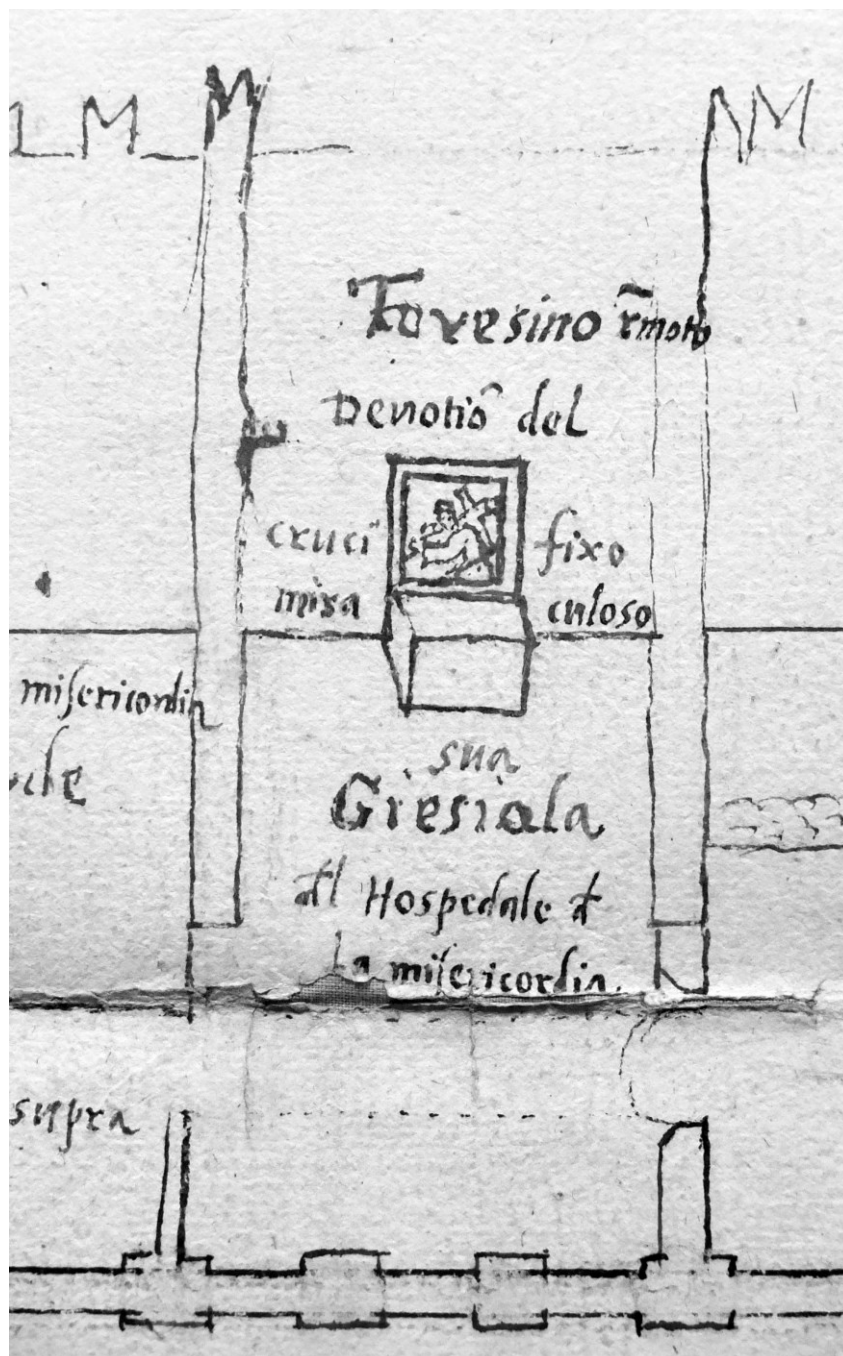 Toresino
Devotiō del
cruci fixo
mira culoso
misericordia
sua
Giesiola
dl Hospedale d
La misericordia.
supra